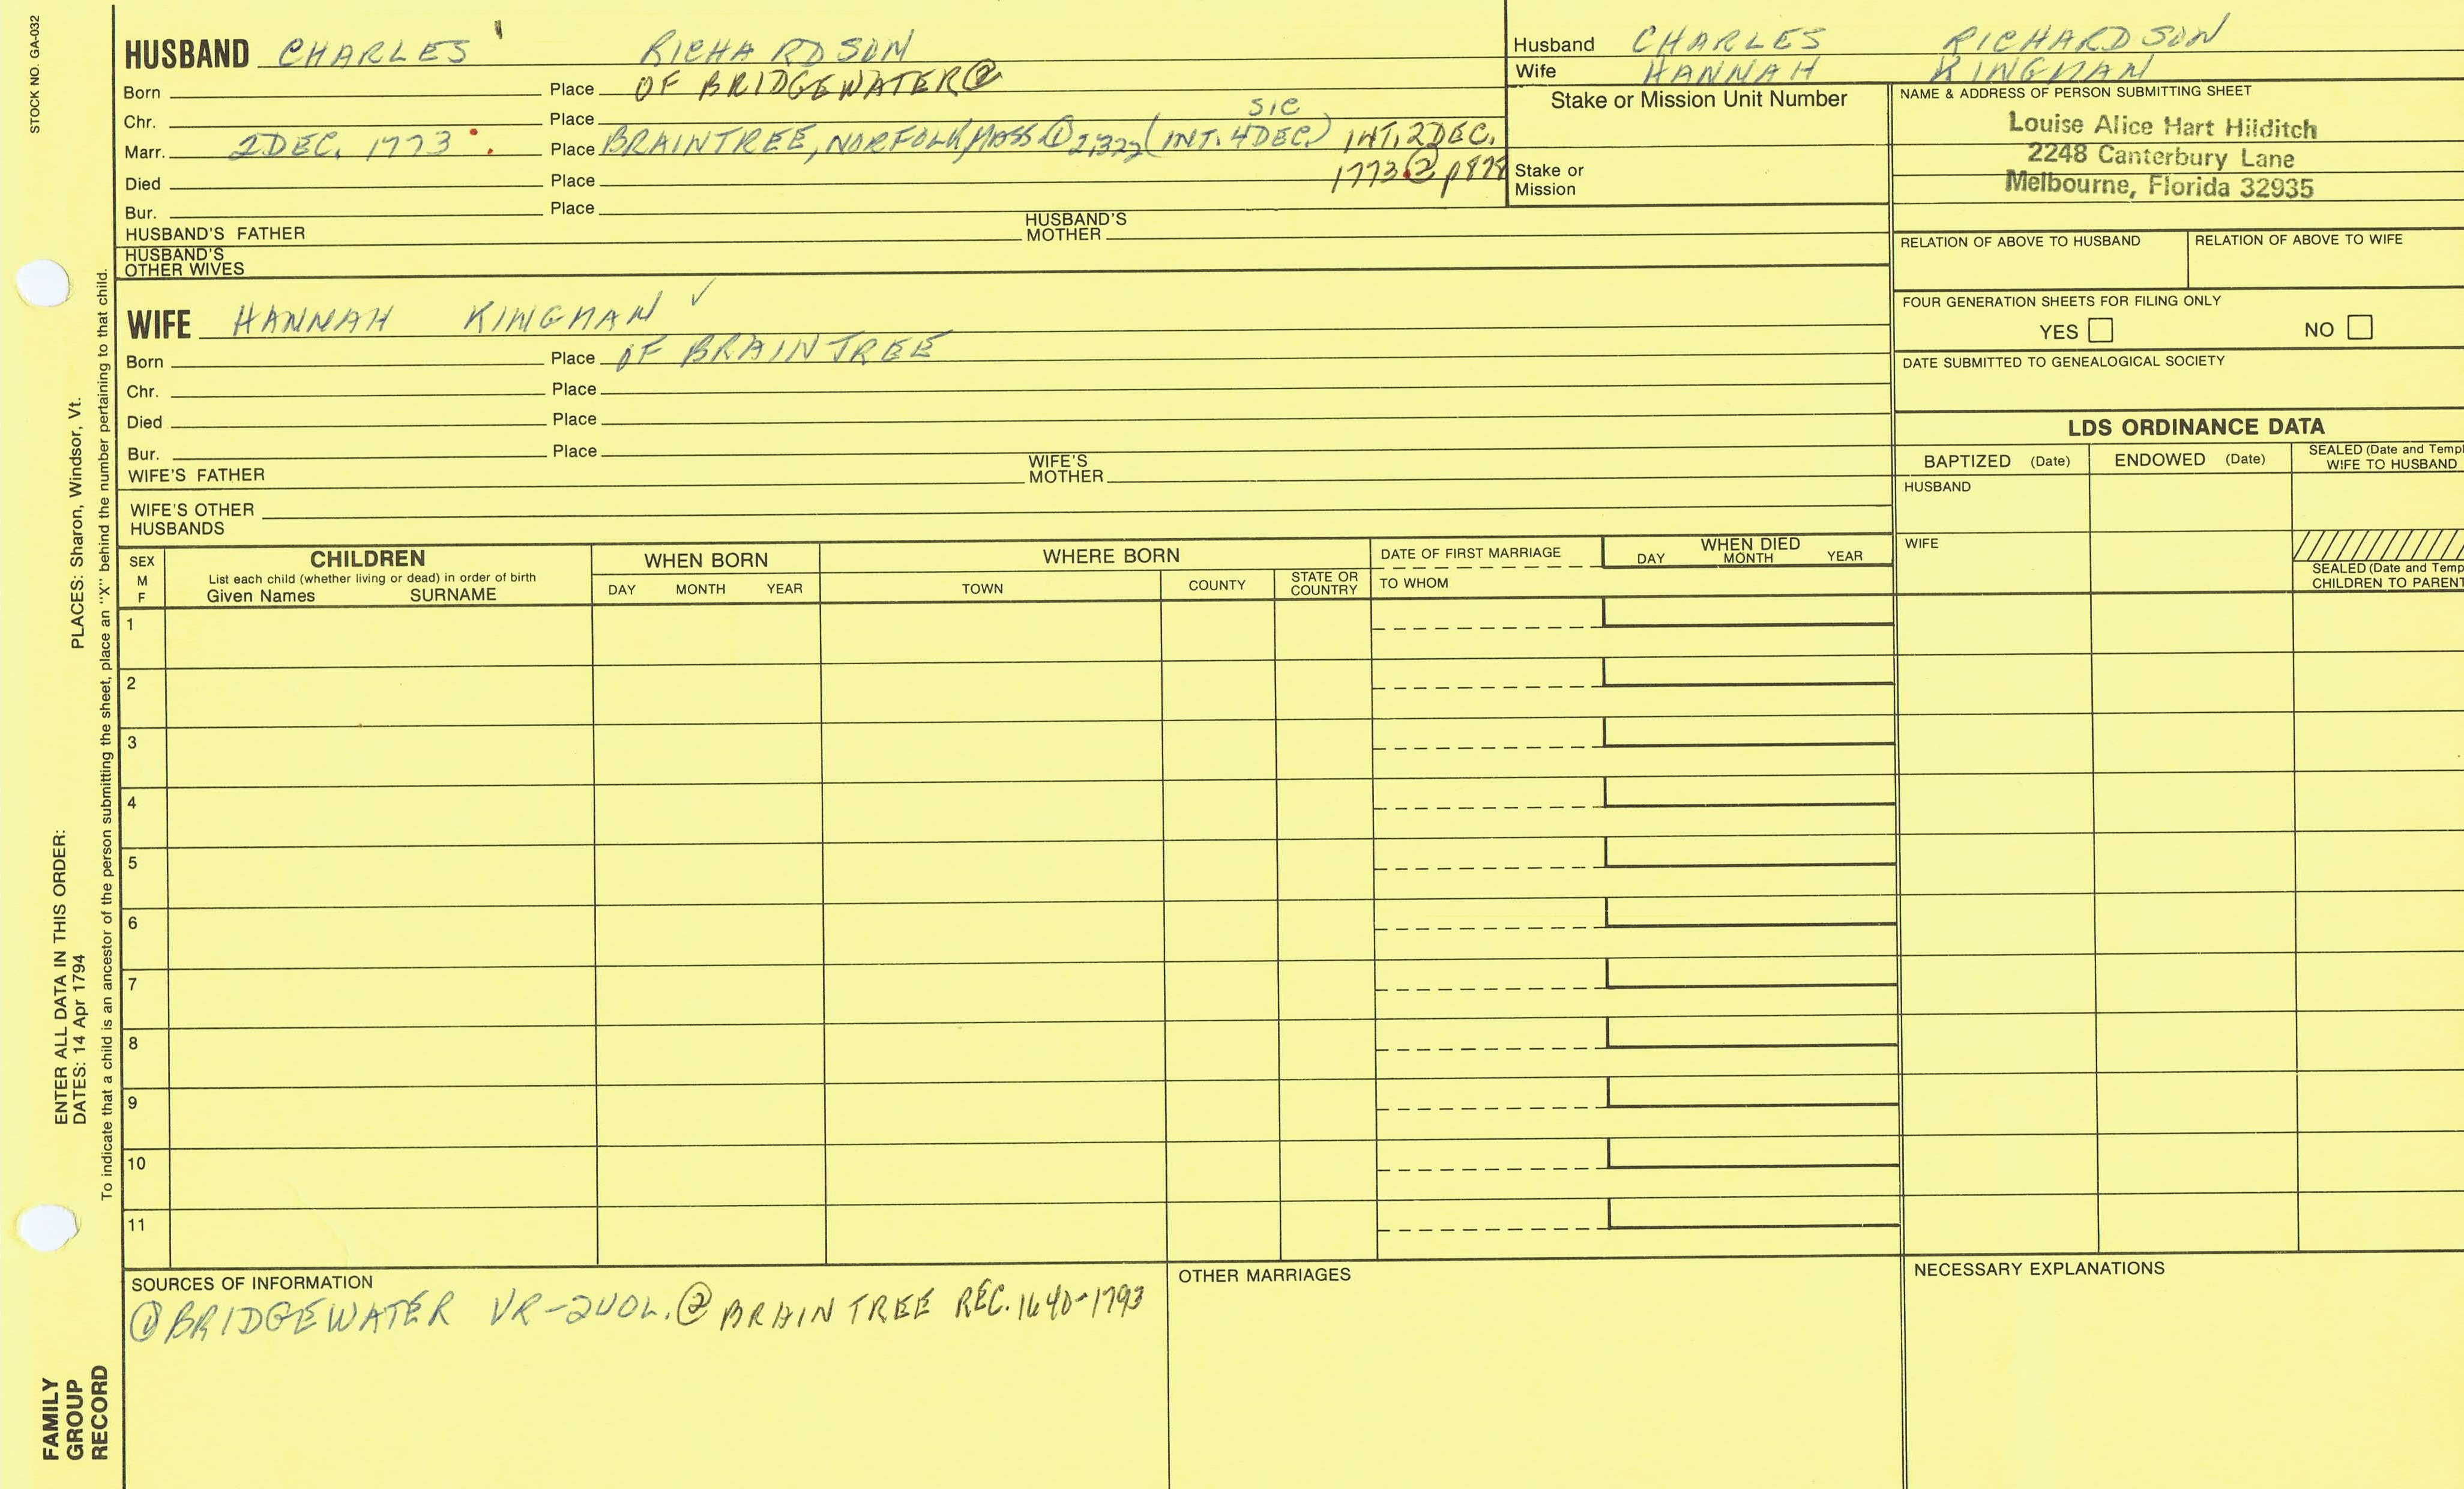 STOCK NO. GA-032
HUSBAND CHARLES RICHARDSON
Born Place OF BRIDGEWATER②
Chr. Place
Marr. 2 DEC. 1773 Place BRAINTREE, NORFOLK, MASS ① 2,322 (INT. 4 DEC.) sic INT. 2 DEC.
1773 ② p 878
Died Place
Bur. Place
HUSBAND'S FATHER HUSBAND'S MOTHER
HUSBAND'S OTHER WIVES
Husband CHARLES RICHARDSON
Wife HANNAH KINGMAN
Stake or Mission Unit Number
Stake or Mission
NAME & ADDRESS OF PERSON SUBMITTING SHEET
Louise Alice Hart Hilditch
2248 Canterbury Lane
Melbourne, Florida 32935
RELATION OF ABOVE TO HUSBAND RELATION OF ABOVE TO WIFE
FOUR GENERATION SHEETS FOR FILING ONLY
YES NO
DATE SUBMITTED TO GENEALOGICAL SOCIETY
WIFE HANNAH KINGMAN ✓
Born Place OF BRAINTREE
Chr. Place
Died Place
Bur. Place
WIFE'S FATHER WIFE'S MOTHER
WIFE'S OTHER HUSBANDS
LDS ORDINANCE DATA
BAPTIZED (Date) ENDOWED (Date) SEALED (Date and Templ
WIFE TO HUSBAND
HUSBAND
WIFE
SEALED (Date and Temp
CHILDREN TO PARENT
SEX M F
CHILDREN
List each child (whether living or dead) in order of birth
Given Names SURNAME
WHEN BORN
DAY MONTH YEAR
WHERE BORN
TOWN COUNTY STATE OR COUNTRY
DATE OF FIRST MARRIAGE
TO WHOM
WHEN DIED
DAY MONTH YEAR
1
2
3
4
5
6
7
8
9
10
11
SOURCES OF INFORMATION
① BRIDGEWATER VR-2VOL. ② BRAINTREE REC. 1640-1793
OTHER MARRIAGES
NECESSARY EXPLANATIONS
ENTER ALL DATA IN THIS ORDER:
DATES: 14 Apr 1794 PLACES: Sharon, Windsor, Vt.
To indicate that a child is an ancestor of the person submitting the sheet, place an "X" behind the number pertaining to that child.
FAMILY
GROUP
RECORD